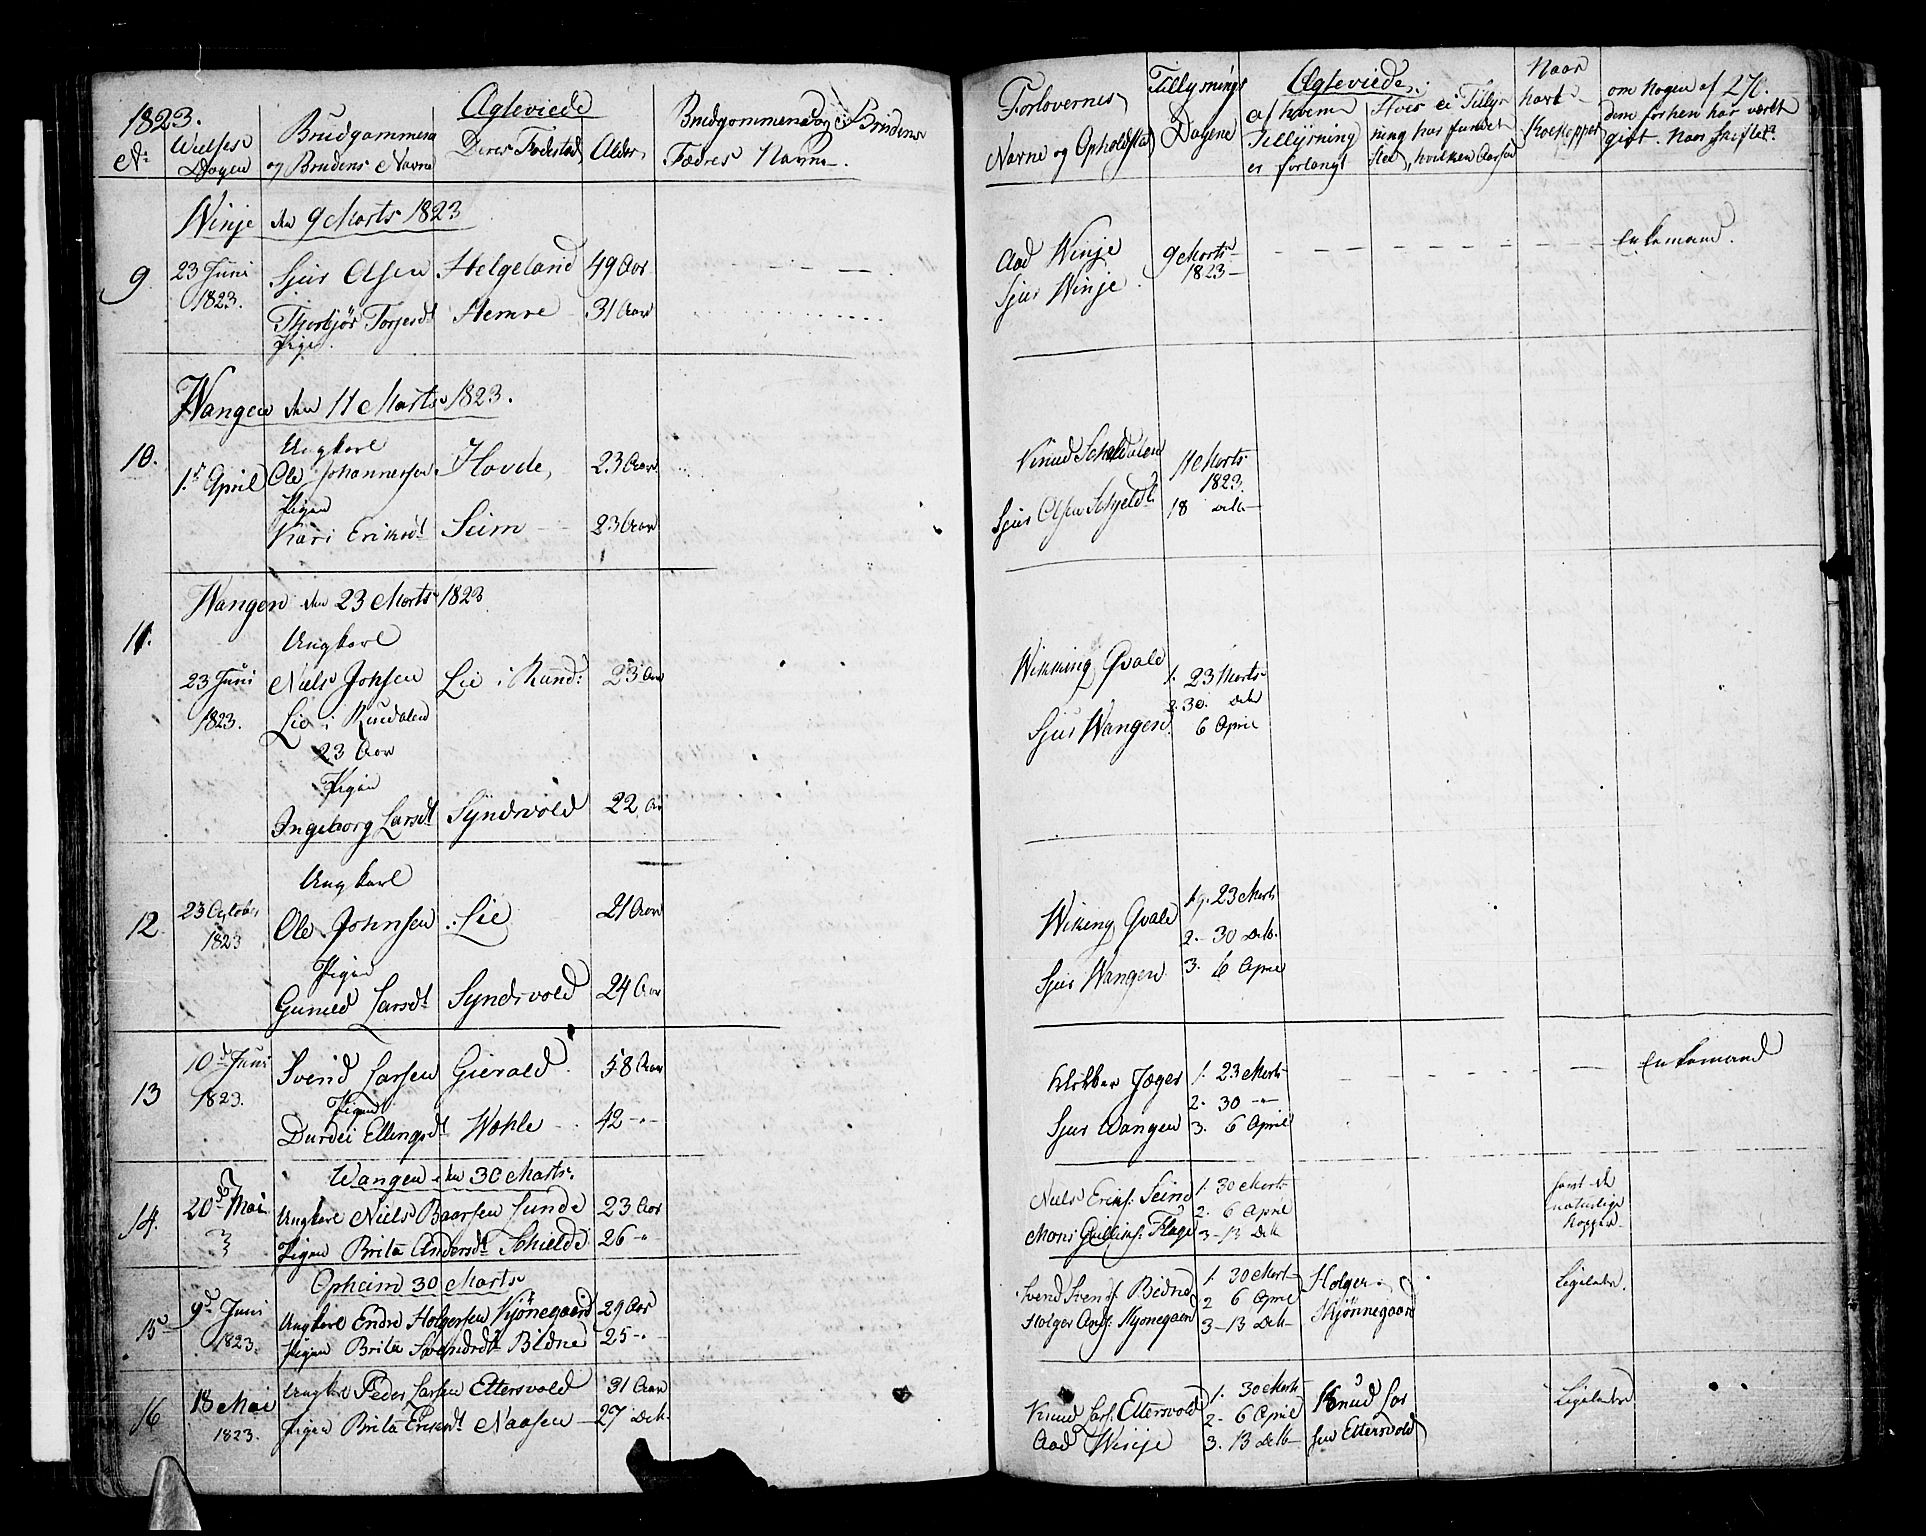 1823.
Ægteviede
No
Vielses Dagen
Brudgommens og Brudens Navne
Deres Fødested
Alder
Brudgommens og Brudens Fædres Navne
Winje den 9 Marts 1823
9 23 Juni 1823.
Sjur Olsen Helgeland 49 Aar
Thorbjør Torjersdt Hemre 31 Aar
Pige
Wangen den 11 Marts 1823.
10. 1st April
Ungkarl
Ole Johannessen Hovde 23 Aar
Pigen
Kari Eriksdt Seim 23 Aar
Wangen den 23 Marts 1823
11. 23 Juni 1823.
Ungkarl
Niels Johsen Lie i Rund: 23 Aar
Lie i Rundalen
23 Aar
Pigen
Ingeborg Larsdt Syndvold 22 Aar
12 23 October 1823
Ungkarl
Ole Johnsen Lie 21 Aar
Pigen
Guneld Larsdt Syndvold 24 Aar
13 10d Juni 1823.
Svend Larsen Gierald 58 Aar
Pigen
Durdei Ellingsdt Wæhle 42 - " -
Wangen den 30 Marts
14. 20d Mai
Ungkarl Niels Baarsen Sunde 23 Aar
Pigen Brita Andersdt Schielde 26 - "
Opheim 30 Marts
15 9d Juni 1823.
Ungkarl Endre Holgersen Kjønegaard 29 Aar
Pigen Brita Svendsdt Bidne 25 - "
16 18 Mai 1823.
Ungkrl Peder Larsen Ettersvold 31 Aar
Pigen Brita Eriksdt Naasen 27 Dito
Ægteviede.
270.
Forlovernes Navne og Opholdsted
Tillysnings Dagene
af hvem Tillysning er forlangt
Hvis ei Tillysning har fundet Sted, hvilken Aarsag
Naar havt Koekopper
om Nogen af dem forhen har været gift. Naar Skiftet
Aad Winje 9 Marts Enkemand.
Sjur Winje 1823
Knud Scheldalen 11 Marts 1823
Sjur Olsen Schjelde 18 Dito
Wikking Qvale 1. 23 Marts
2. 30. Dito
Sjur Wangen 6 April
Wiking Qvale 1. 23 Marts
2. 30 Dito
Sjur Wangen 3. 6 April
Klokker Jæger 1. 23 Marts Enkemand
2. 30 - " -
Sjur Wangen 3. 6 April
Niels Eriks. Seim 1. 30 Marts
2. 6 April
Mons Flage 3 - 13 Dito
havt de naturlige Kopper
Svend Svends. Bidne 1. 30 Marts Holger Ligeledes.
2 6 April
Holger And. Kjønegaard 3 - 13 Dito Kjønnegaard
Knud Lars. Ettersvold 1. 30 Marts Knud Lar Ligeledes
2 - 6 April
Aad Winje 3. 13 Dito sen Ettersvold